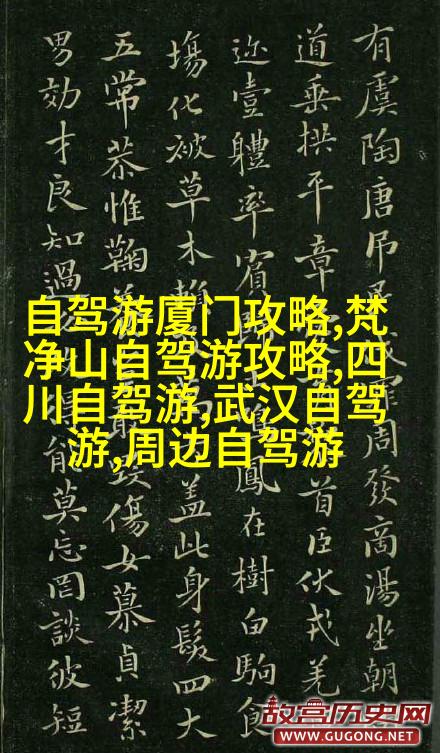 有虞陶唐吊伐罪周發商湯坐朝
道垂拱平章首臣伏戎羌
迩壹體率賓歸鳳在樹白駒食
場化被草木賴蓋此身髮四大
五常恭惟鞠毀傷女慕貞潔
男効才良知過得能莫忘罔談彼短
自驾游厦门攻略,梵
净山自驾游攻略,四
川自驾游,武汉自驾
游,周边自驾游
故宫历史网
WWW.GUGONG.NET